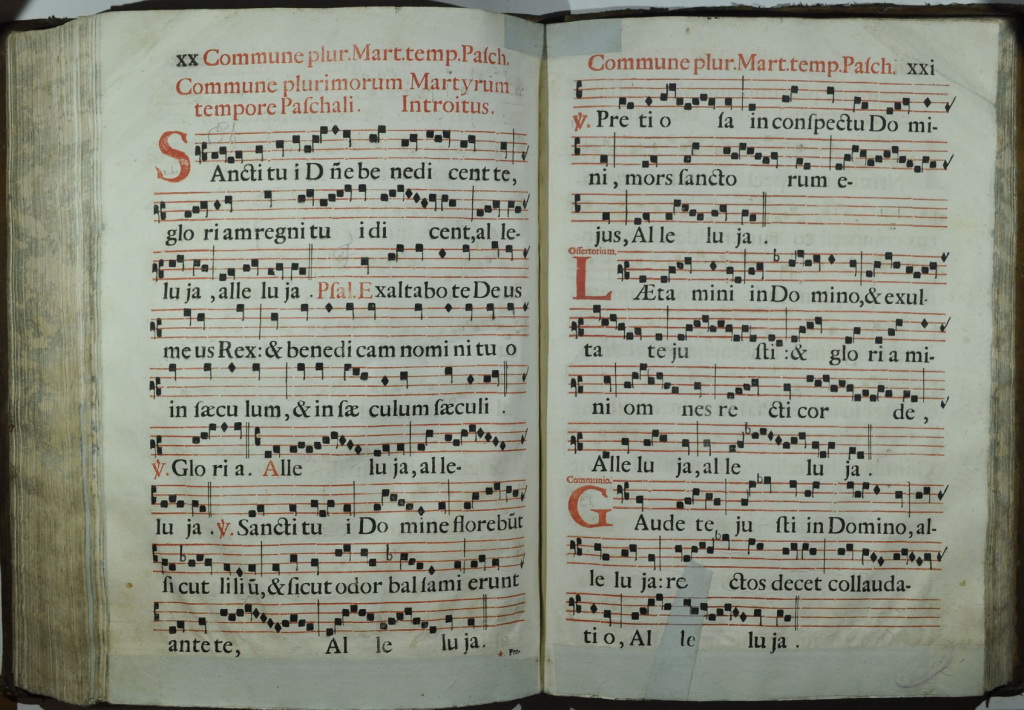 xx Commune plur. Mart. temp. Paſch.
Commune plurimorum Martyrum
tempore Paſchali. Introitus.
SAncti tu i D ñe be nedi cent te,
glo ri am regni tu i di cent, al le-
lu ja , alle lu ja . Pſal. Exaltabo te Deus
me us Rex: & benedi cam nomi ni tu o
in ſæcu lum, & in ſæ culum ſæculi .
℣. Glo ri a. Alle lu ja, al le-
lu ja . ℣. Sancti tu i Do mine florebūt
ſi cut liliū, & ſicut odor bal ſami erunt
ante te, Al le lu ja.
℣. Pre-
Commune plur. Mart. temp. Paſch. xxi
℣. Pre ti o ſa in conſpectu Do mi-
ni , mors ſancto rum e-
jus, Al le lu ja .
Offertorium.
LÆta mini in Do mino, & exul-
ta te ju ſti : & glo ri a mi-
ni om nes re cti cor de ,
Alle lu ja, al le lu ja .
Communio.
GAude te, ju ſti in Domino, al-
le lu ja: re ctos decet collauda-
ti o, Al le lu ja .